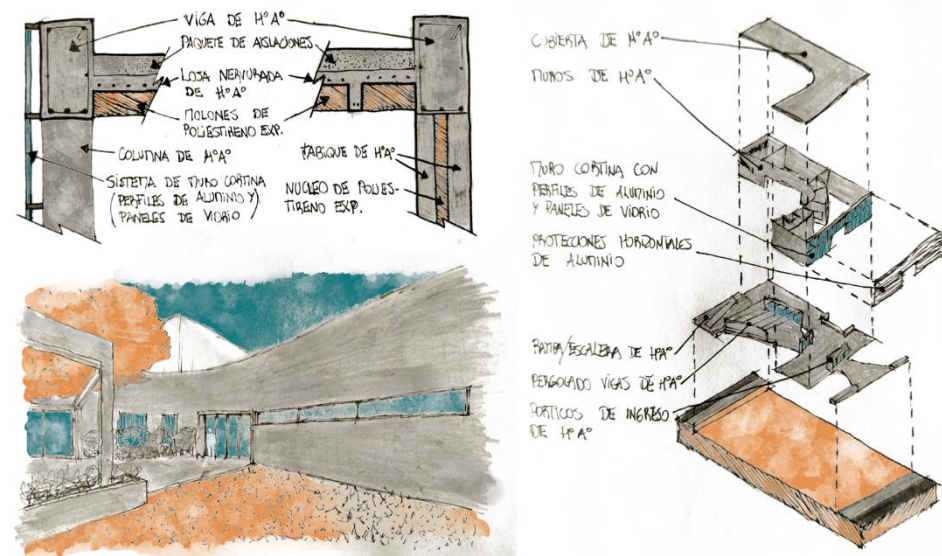 VIGA DE HºAº
PAQUETE DE AISLACIONES
LOSA NERVURADA
DE HºAº
MOLONES DE
POLIESTIRENO EXP.
COLUMNA DE HºAº
TABIQUE DE HºAº
SISTEMA DE MURO CORTINA
(PERFILES DE ALUMINIO Y
PANELES DE VIDRIO)
NUCLEO DE POLIES-
TIRENO EXP.
CUBIERTA DE HºAº
MUROS DE HºAº
MURO CORTINA CON
PERFILES DE ALUMINIO
Y PANELES DE VIDRIO
PROTECCIONES HORIZONTALES
DE ALUMINIO
RAMPA/ESCALERA DE HºAº
PERGOLADO VIGAS DE HºAº
PORTICOS DE INGRESO
DE HºAº